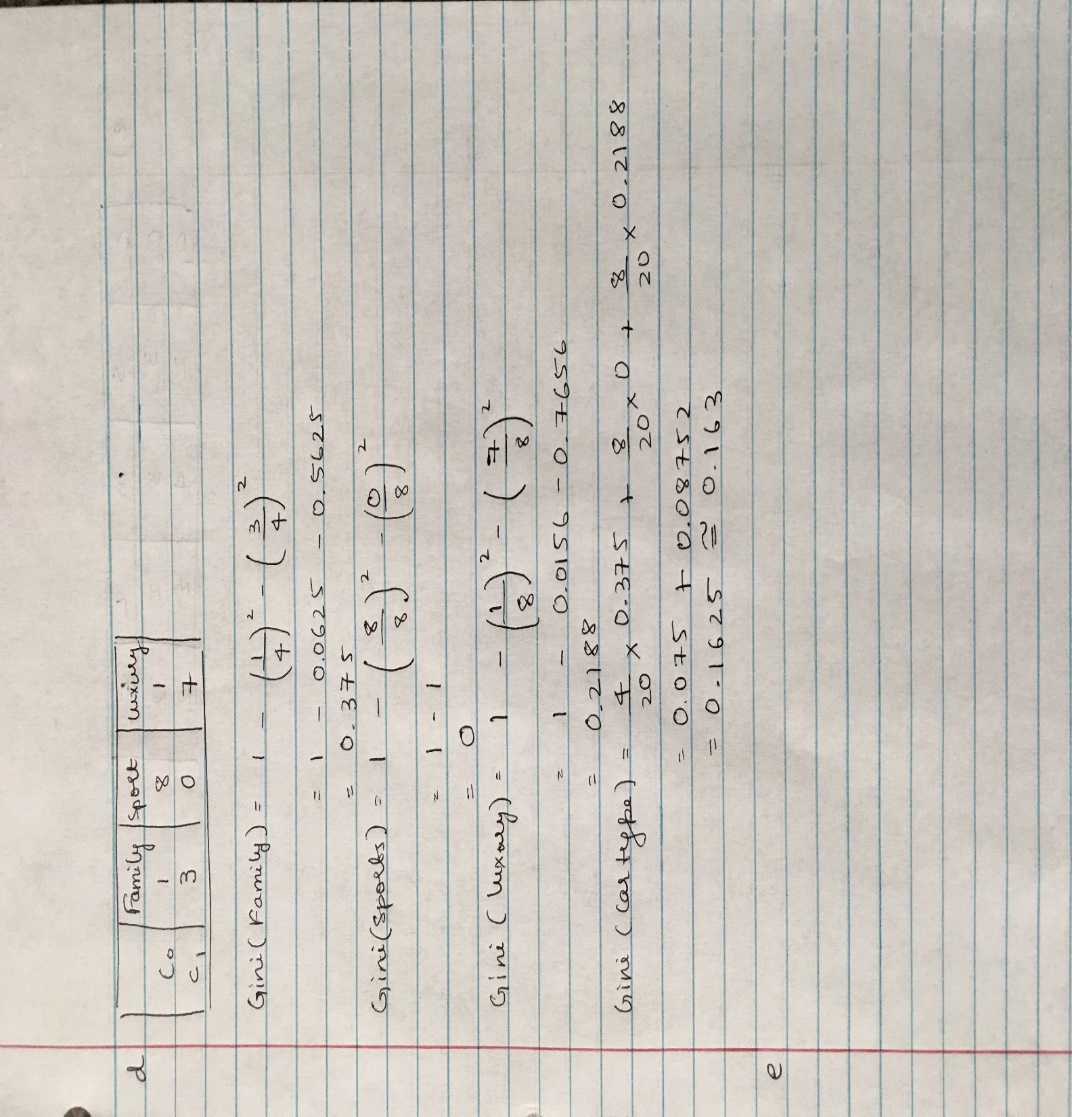 d
| Family | Sport | luxury |
C0 | 1 | 8 | 1
C1 | 3 | 0 | 7
Gini (Family) = 1 - (1/4)² - (3/4)²
= 1 - 0.0625 - 0.5625
= 0.375
Gini (Sports) = 1 - (8/8)² - (0/8)²
= 1 - 1
= 0
Gini (luxury) = 1 - (1/8)² - (7/8)²
= 1 - 0.0156 - 0.7656
= 0.2188
Gini (Car type) = 4/20 × 0.375 + 8/20 × 0 + 8/20 × 0.2188
= 0.075 + 0.08752
= 0.1625 ≅ 0.163
e